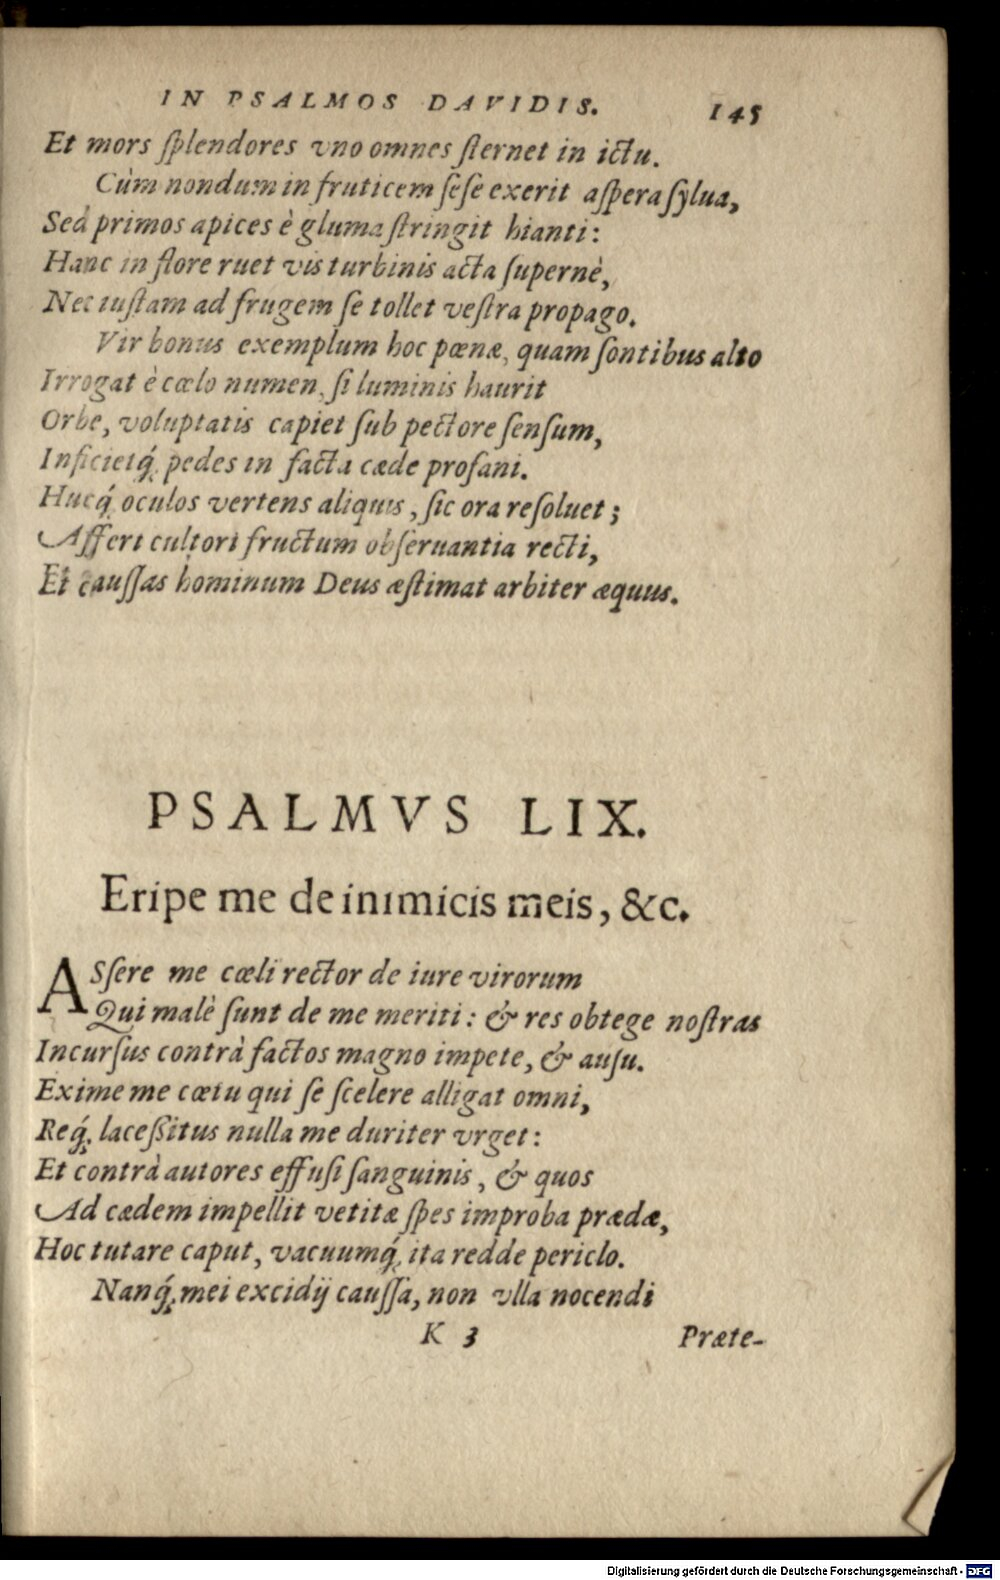 IN PSALMOS DAVIDIS. 145
Et mors ſplendores vno omnes ſternet in ictu.
Cùm nondum in fruticem ſeſe exerit aſpera ſylua,
Sed primos apices è gluma ſtringit hianti:
Hanc in flore ruet vis turbinis acta ſupernè,
Nec iuſtam ad frugem ſe tollet veſtra propago.
Vir bonus exemplum hoc pœnæ, quam ſontibus alto
Irrogat è cœlo numen, ſi luminis haurit
Orbe, voluptatis capiet ſub pectore ſenſum,
Inficietq́; pedes in facta cæde profani.
Hucq́; oculos vertens aliquis, ſic ora reſoluet;
Affert cultori fructum obſeruantia recti,
Et cauſſas hominum Deus æſtimat arbiter æquus.
PSALMVS LIX.
Eripe me de inimicis meis, &c.
ASſere me cœli rector de iure virorum
Qui malè ſunt de me meriti: & res obtege noſtras
Incurſus contrà factos magno impete, & auſu.
Exime me cœtu qui ſe ſcelere alligat omni,
Req́; laceßitus nulla me duriter vrget:
Et contrà autores effuſi ſanguinis, & quos
Ad cædem impellit vetitæ ſpes improba prædæ,
Hoc tutare caput, vacuumq́; ita redde periclo.
Nanq́; mei excidij cauſſa, non vlla nocendi
K 3 Præte-
Digitalisierung gefördert durch die Deutsche Forschungsgemeinschaft - DFG